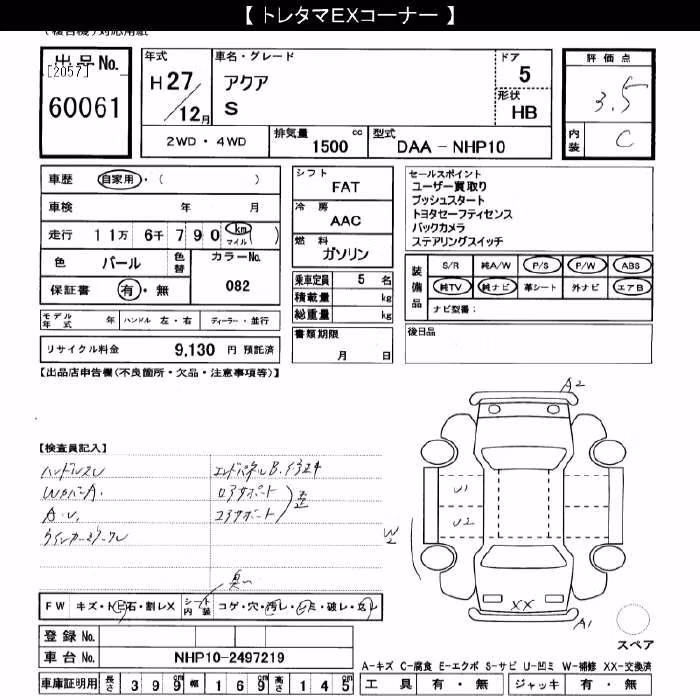 【 トレタマEXコーナー 】
出品No.
[2057]
60061
年式
H27/12月
車名・グレード
アクア
S
ドア
5
形状
HB
2WD・4WD
排気量 cc
1500
型式
DAA - NHP10
評価点
3.5
内装
C
車歴 自家用・( )
車検 年 月
走行 11万 6千 790 km マイル ( )
色 パール 色替
カラーNo.
082
保証書 有・無
シフト
FAT
冷房
AAC
燃料
ガソリン
乗車定員 5 名
積載量 kg
総重量 kg
書類期限
月 日
セールスポイント
ユーザー買取り
プッシュスタート
トヨタセーフティセンス
バックカメラ
ステアリングスイッチ
装備品
S/R 純A/W P/S P/W ABS
純TV 純ナビ 革シート 外ナビ エアB
ナビ型番:
モデル年式 年 ハンドル 左・右 ディーラー・並行
リサイクル料金 9,130 円 預託済
後日品
【出品店申告欄(不良箇所・欠品・注意事項等)】
【検査員記入】
ハンドルスレ
エンドパネルB.
ロアサポート
コアサポート
歪
A2
U1
U2
W2
XX
A1
臭い
FW キズ・トビ石・割レX シート内装 コゲ・穴・汚レ・シミ・破レ・スレ
スペア
登録No.
車台No. NHP10-2497219
A-キズ C-腐食 E-エクボ S-サビ U-凹ミ W-補修 XX-交換済
車庫証明用 長さ 399cm 幅 169cm 高さ 145cm
工具 有・無 ジャッキ 有・無